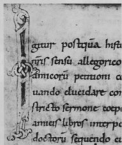 gitur postquã hist
sensu allegorico
amicorũ petitioni c
uando elucidare con
stricto sermone coep
annus libros interp
doctorũ sequendo